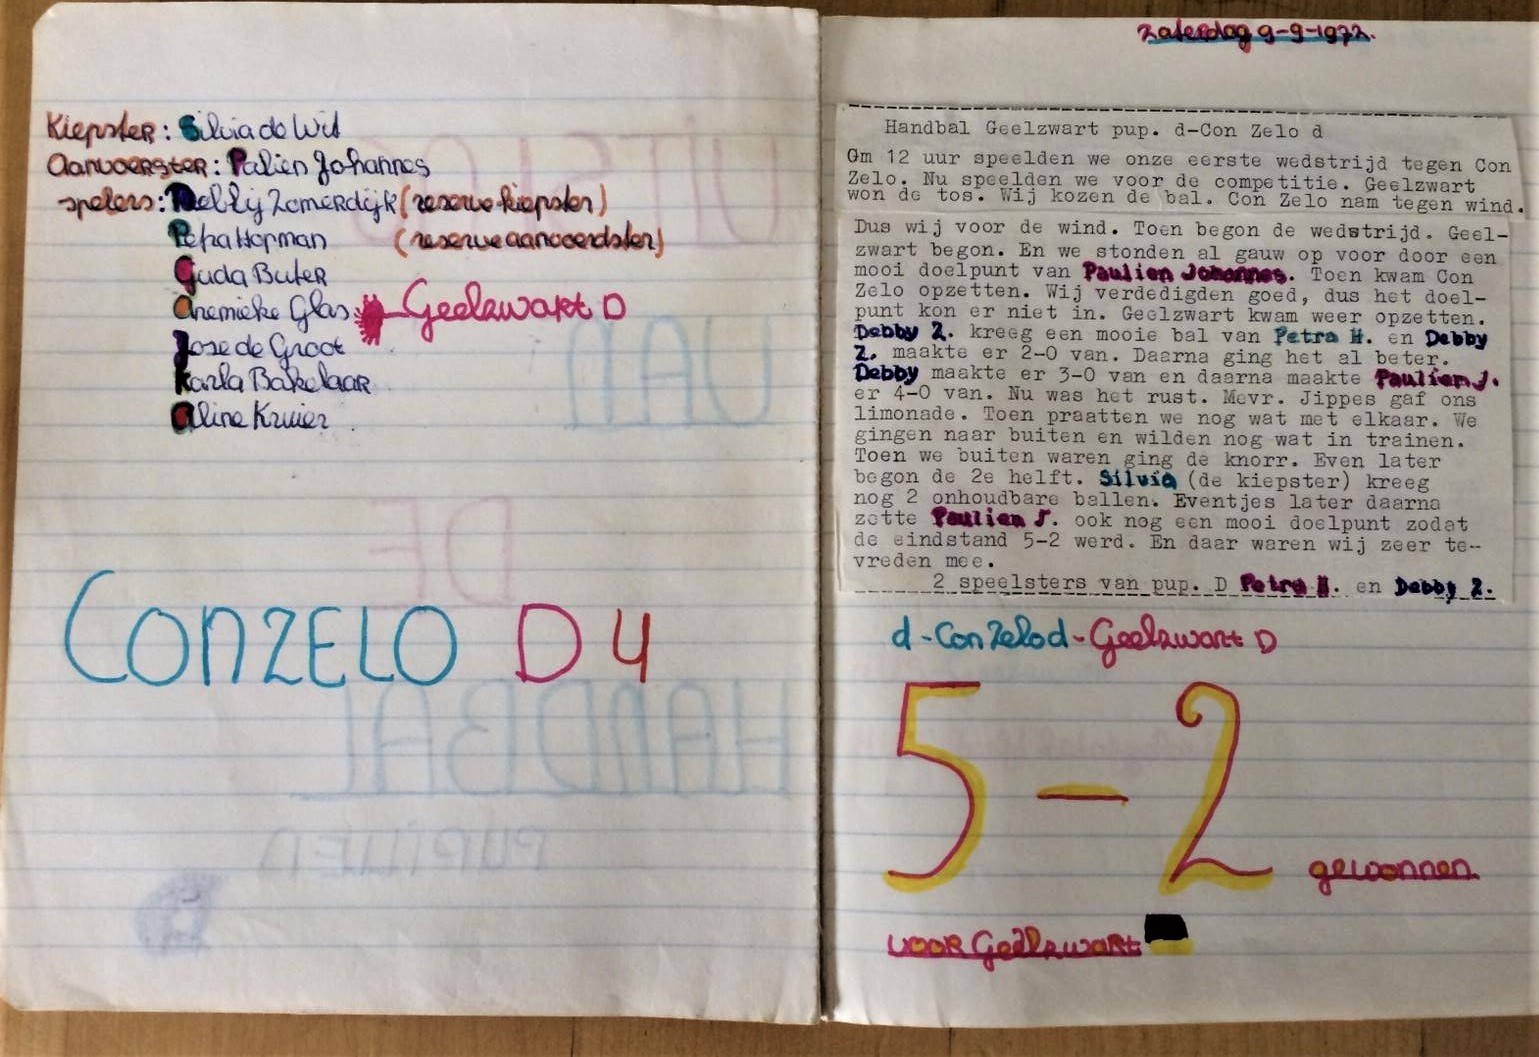 Kiepster: Silvia de Wit
Aanvoerster: Palien Johannes
spelers: Debby Zomerdijk (reserve kiepster)
Petra Hopman (reserve aanvoerdster)
Guda Buter
Anemieke Glas - Geelzwart D
Jose de Groot
Karla Bakelaar
Aline Kruier
CONZELO D 4
zaterdag 9-9-1972.
Handbal Geelzwart pup. d-Con Zelo d
Om 12 uur speelden we onze eerste wedstrijd tegen Con
Zelo. Nu speelden we voor de competitie. Geelzwart
won de tos. Wij kozen de bal. Con Zelo nam tegen wind.
Dus wij voor de wind. Toen begon de wedstrijd. Geel-
zwart begon. En we stonden al gauw op voor door een
mooi doelpunt van Paulien Johannes. Toen kwam Con
Zelo opzetten. Wij verdedigden goed, dus het doel-
punt kon er niet in. Geelzwart kwam weer opzetten.
Debby Z. kreeg een mooie bal van Petra H. en Debby
Z. maakte er 2-0 van. Daarna ging het al beter.
Debby maakte er 3-0 van en daarna maakte Paulien J.
er 4-0 van. Nu was het rust. Mevr. Jippes gaf ons
limonade. Toen praatten we nog wat met elkaar. We
gingen naar buiten en wilden nog wat in trainen.
Toen we buiten waren ging de knorr. Even later
begon de 2e helft. Silvia (de kiepster) kreeg
nog 2 onhoudbare ballen. Eventjes later daarna
zette Paulien J. ook nog een mooi doelpunt zodat
de eindstand 5-2 werd. En daar waren wij zeer te-
vreden mee.
2 speelsters van pup. D Petra H. en Debby Z.
d-Con Zelo d-Geelzwart D
5-2 gewonnen
voor Geelzwart